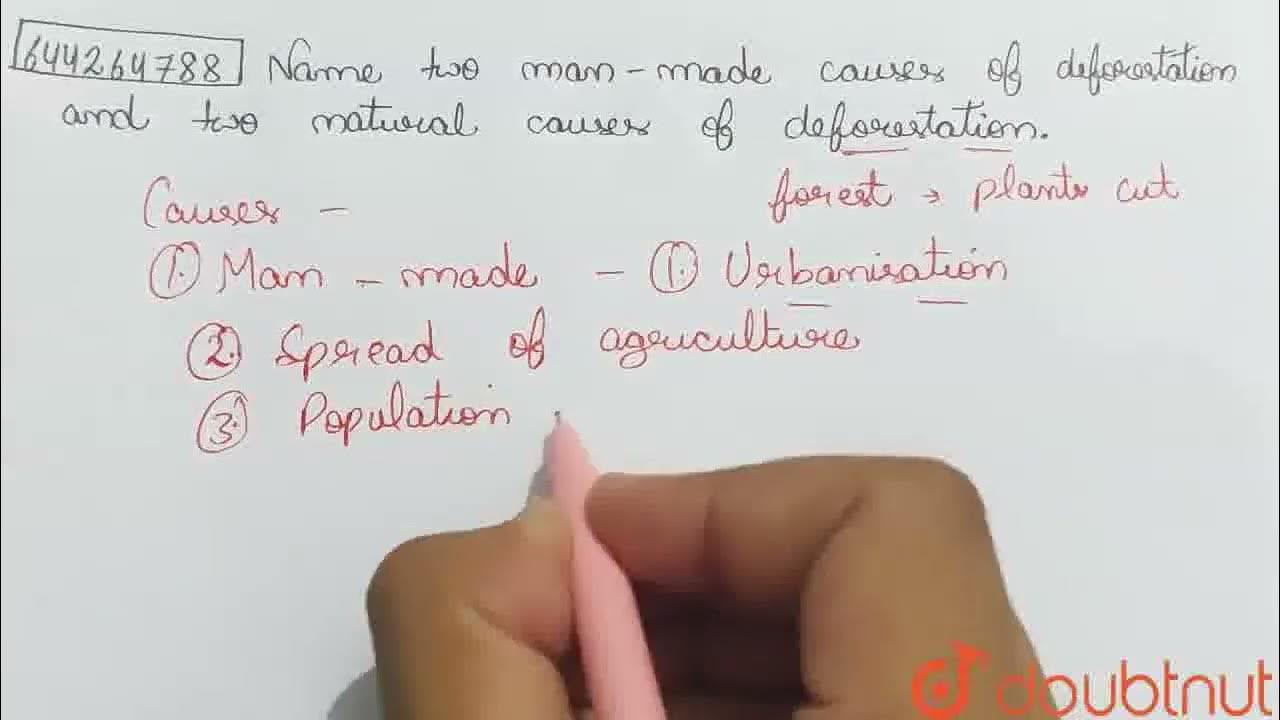 644264788 Name two man-made causes of deforestation
and two natural causes of deforestation.
forest → plants cut
Causes -
1. Man-made - 1. Urbanisation
2. Spread of agriculture
3. Population
doubtnut